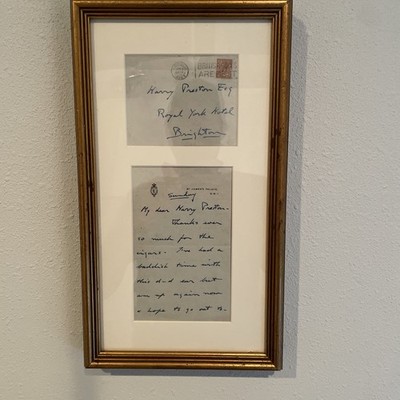 BRITISH
ARE BEST
Harry Preston Esq
Royal York Hotel
Brighton
ST. JAMES'S PALACE,
S.W.
Sunday
My dear Harry Preston.
Thanks ever
so much for the
cigars. I've had a
baddish time with
this d-d ear but
am up again now
& hope to go out to-